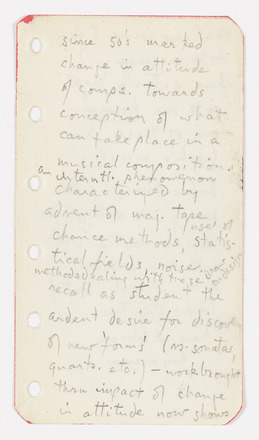 since 50's marked
change in attitude
of comps. towards
conception of what
can take place in a
musical composition.
an internt'l. phenomenon
characterized by
advent of mag. tape
use of
chance methods, statis-
tical fields, noise,
methods dealing with these
recall as student the
ardent desire for discovery
of new forms (vs. sonatas,
quarts. etc.) – work brought
thru impact of change
in attitude now shows